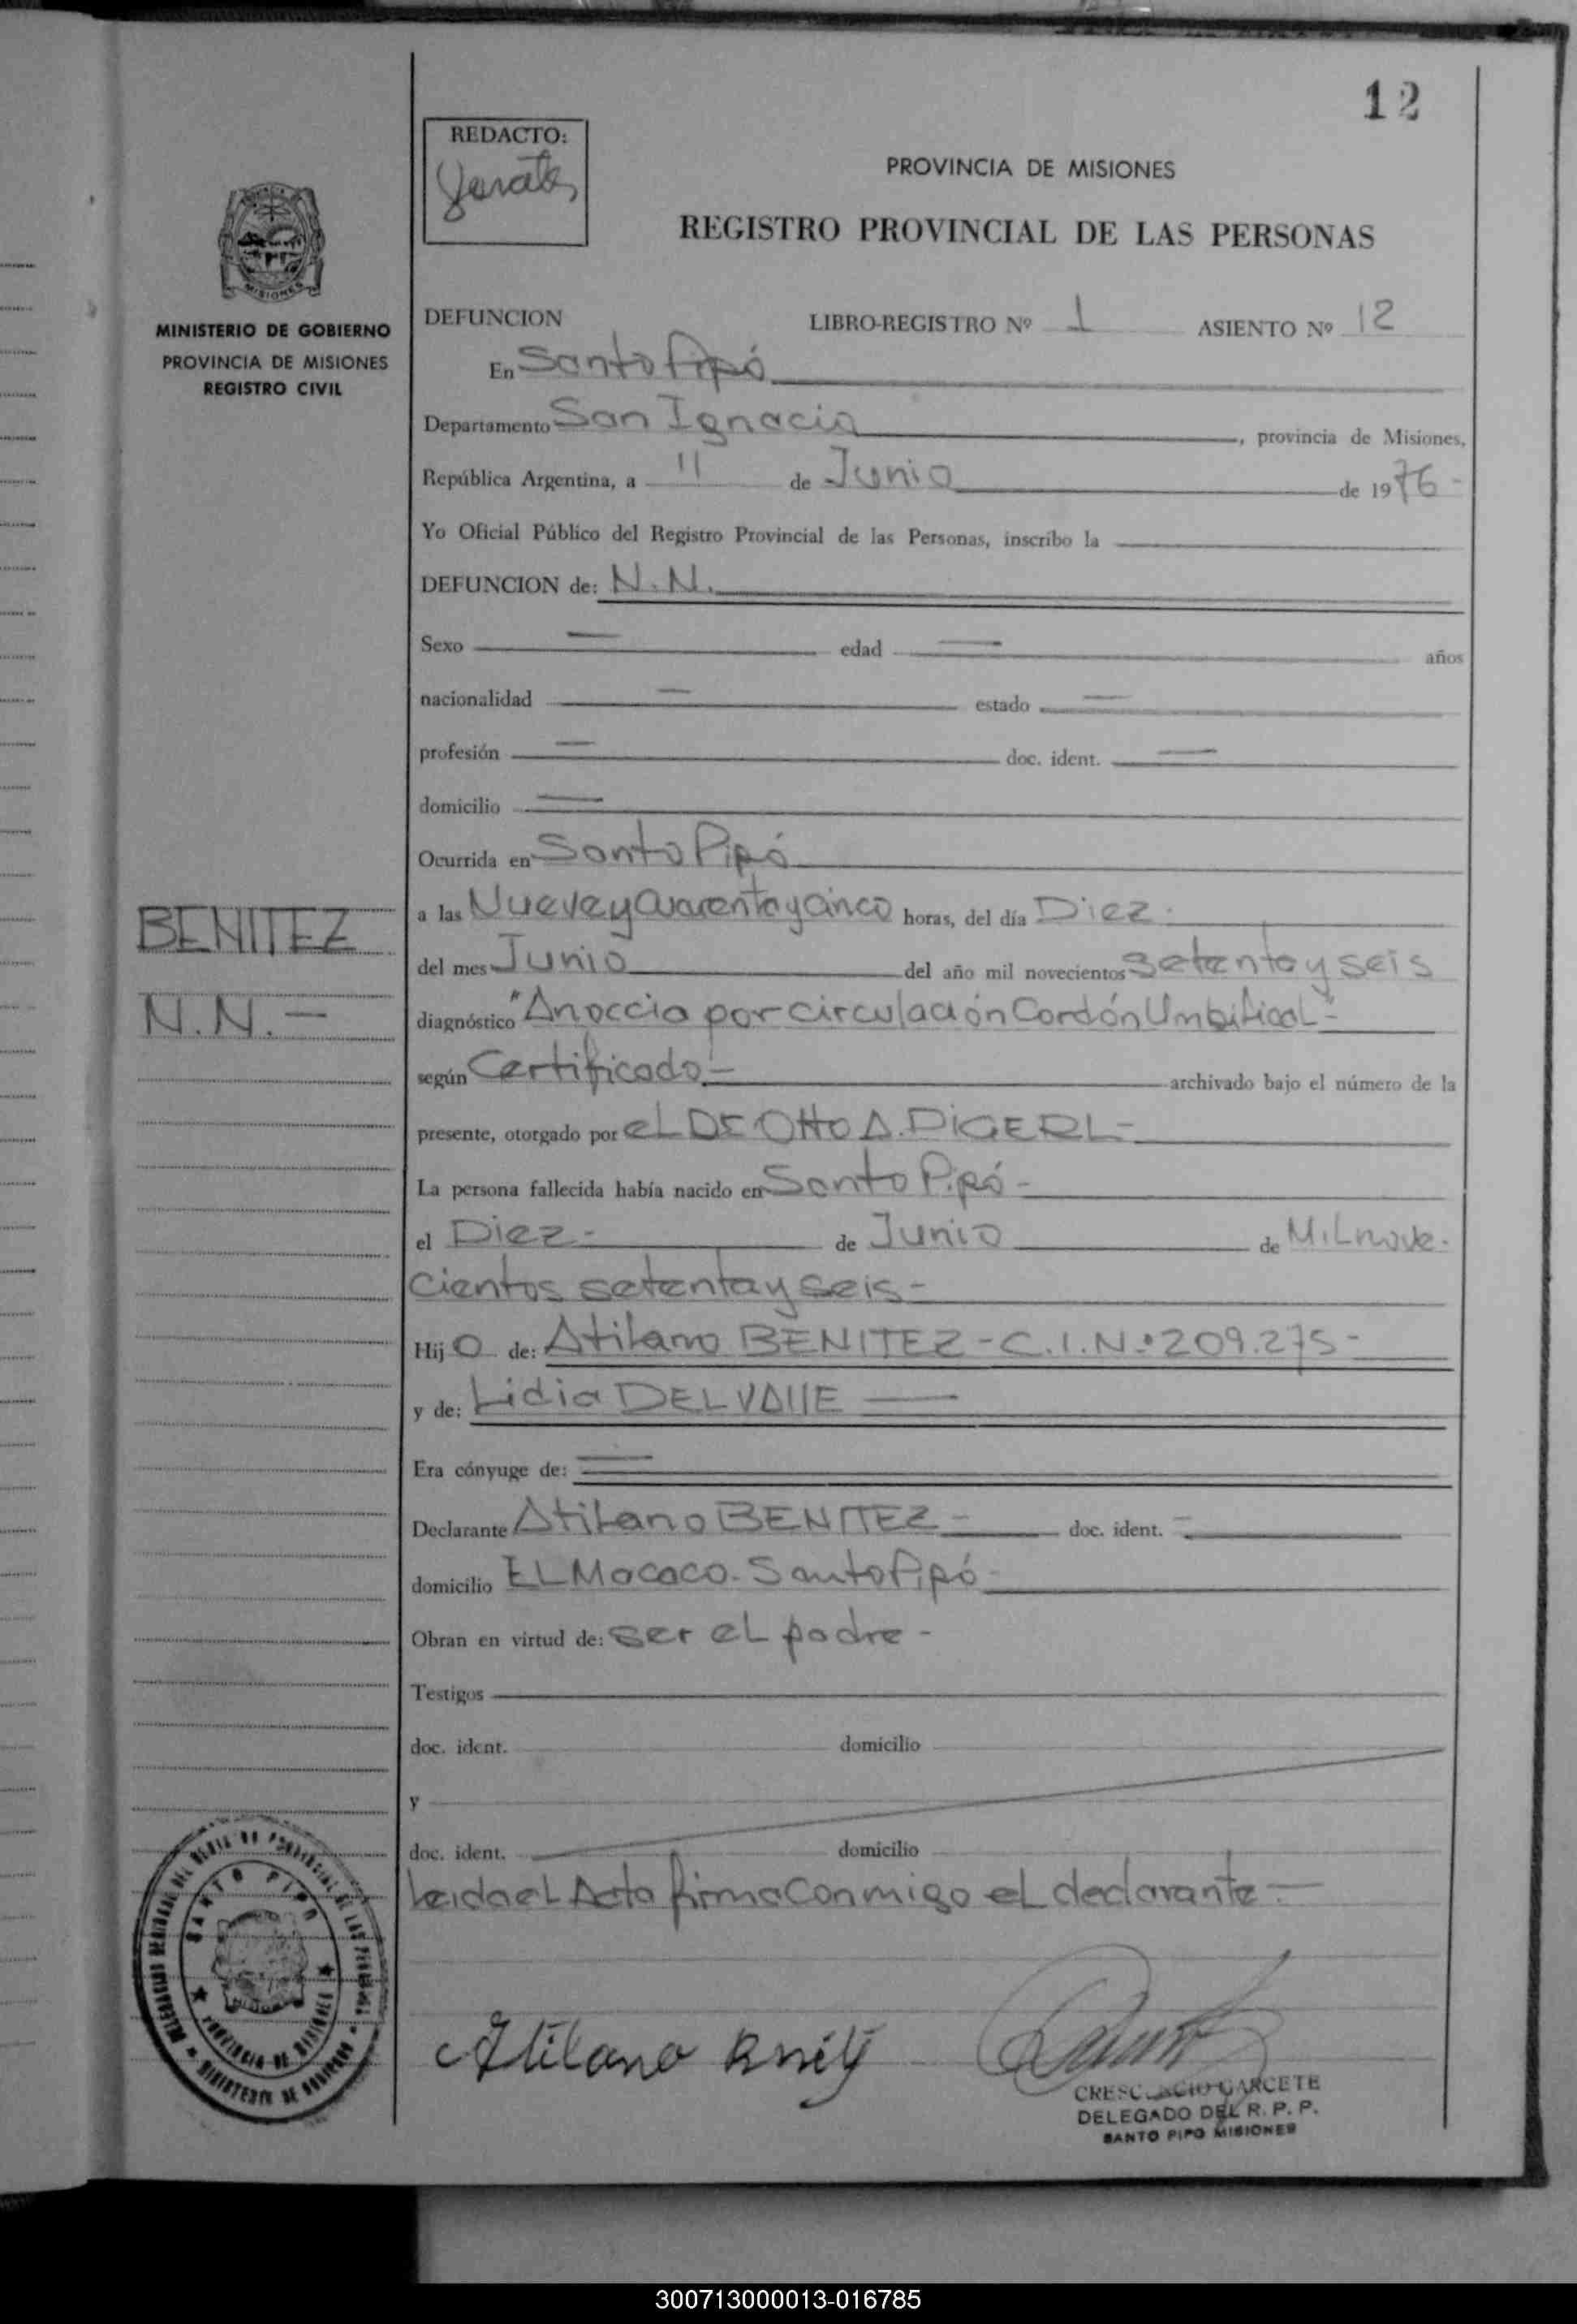 12
REDACTO:
PROVINCIA DE MISIONES
REGISTRO PROVINCIAL DE LAS PERSONAS
MISIONES
MINISTERIO DE GOBIERNO
PROVINCIA DE MISIONES
REGISTRO CIVIL
DEFUNCION LIBRO-REGISTRO Nº 1 ASIENTO Nº 12
En Santo Pipó
Departamento San Ignacio, provincia de Misiones,
República Argentina, a 11 de Junio de 1976-
Yo Oficial Público del Registro Provincial de las Personas, inscribo la
DEFUNCION de: N.N.
Sexo — edad — años
nacionalidad — estado —
profesión — doc. ident. —
domicilio —
Ocurrida en Santo Pipó
a las Nueve y Cuarenta y Cinco horas, del día Diez-
del mes Junio del año mil novecientos setenta y seis
diagnóstico "Anoccia por circulación Cordón Umbilical"-
según Certificado- archivado bajo el número de la
presente, otorgado por el Dr Otto A. DIGERL-
La persona fallecida había nacido en Santo Pipó-
el Diez- de Junio de Mil nove-
cientos setenta y seis-
Hijo de: Atilano BENITEZ - C.I.Nº 209.275-
y de: Lidia DEL VALLE —
Era cónyuge de: —
Declarante Atilano BENITEZ- doc. ident. -
domicilio EL Mococo- Santo Pipó-
Obran en virtud de: ser el padre-
Testigos
doc. ident. domicilio
y
doc. ident. domicilio
Leida el Acta firma Conmigo el declarante-
BENITEZ
N.N.-
SANTO PIPO
PROVINCIA DE MISIONES
MINISTERIO DE GOBIERNO
Atilano
GARCETE
DELEGADO DEL R. P. P.
SANTO PIPO MISIONES
300713000013-016785